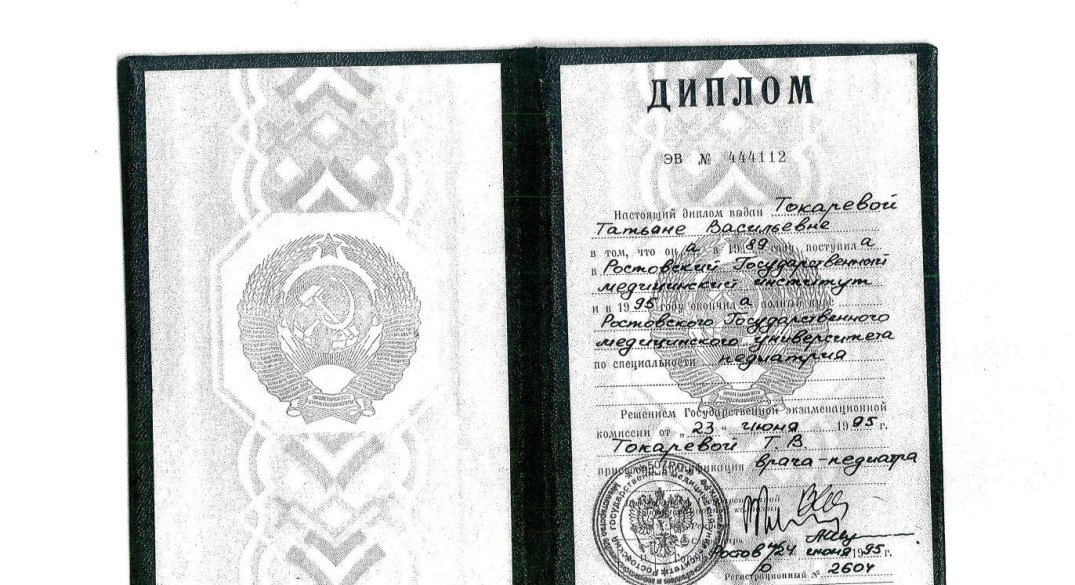 ДИПЛОМ
ЭВ № 444112
Настоящий диплом выдан Токаревой
Татьяне Васильевне
в том, что он а в 1989 году поступил а
в Ростовский Государственный
медицинский институт
и в 1995 году окончил а полный курс
Ростовского Государственного
медицинского университета
по специальности педиатрия
Решением Государственной экзаменационной
комиссии от „23" июня 1995 г.
Токаревой Т. В.
присвоена квалификация врача-педиатра
Ростов 24 июня 1995 г.
Регистрационный № 2604